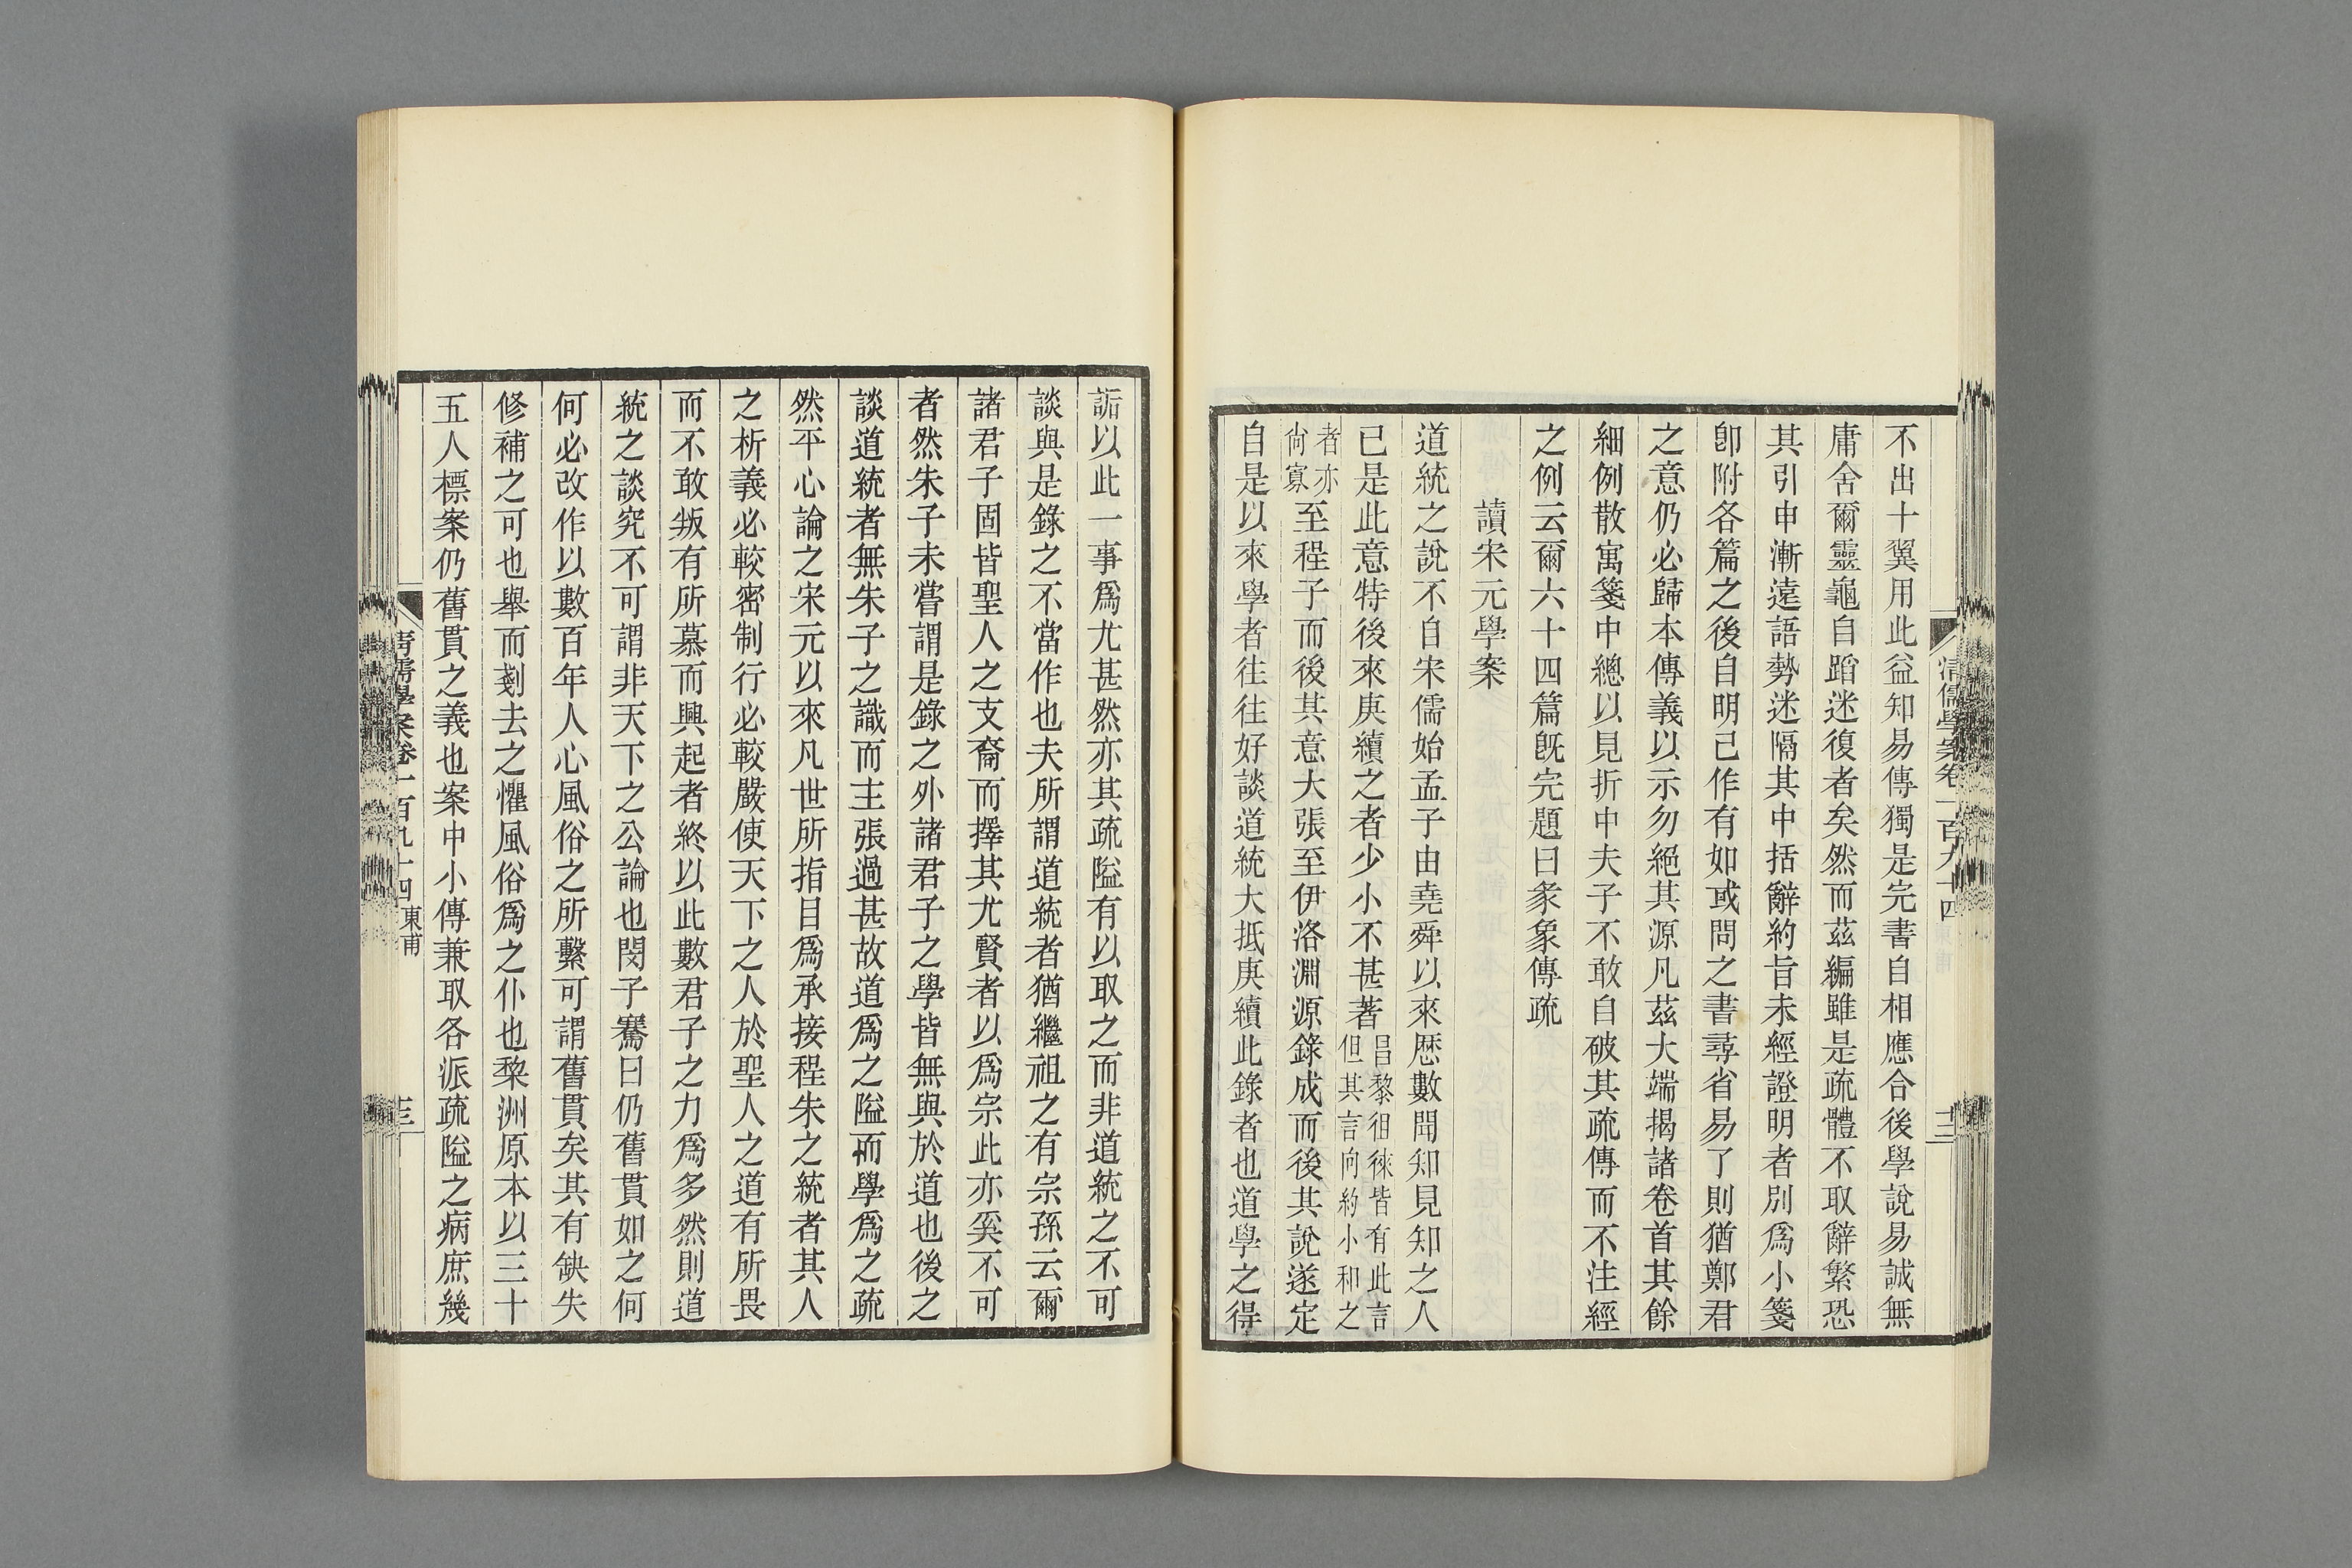 不出十翼用此益知易傳獨是完書自相應合後學說易誠無
庸舍爾靈龜自蹈迷復者矣然而茲編雖是疏體不取辭繁恐
其引申漸遠語勢迷隔其中括辭約旨未經證明者別爲小箋
卽附各篇之後自明己作有如或問之書尋省易了則猶鄭君
之意仍必歸本傳義以示勿絕其源凡茲大端揭諸卷首其餘
細例散寓箋中總以見折中夫子不敢自破其疏傳而不注經
之例云爾六十四篇旣完題曰彖象傳疏
讀宋元學案
道統之說不自宋儒始孟子由堯舜以來歷數聞知見知之人
已是此意特後來庚續之者少小不甚著昌黎徂徠皆有此言但其言尙約小和之
者亦尙寡至程子而後其意大張至伊洛淵源錄成而後其說遂定
自是以來學者往往好談道統大抵庚續此錄者也道學之得
詬以此一事爲尤甚然亦其疏隘有以取之而非道統之不可
談與是錄之不當作也夫所謂道統者猶繼祖之有宗孫云爾
諸君子固皆聖人之支裔而擇其尤賢者以爲宗此亦奚不可
者然朱子未嘗謂是錄之外諸君子之學皆無與於道也後之
談道統者無朱子之識而主張過甚故道爲之隘而學爲之疏
然平心論之宋元以來凡世所指目爲承接程朱之統者其人
之析義必較密制行必較嚴使天下之人於聖人之道有所畏
而不敢叛有所慕而興起者終以此數君子之力爲多然則道
統之談究不可謂非天下之公論也閔子騫曰仍舊貫如之何
何必改作以數百年人心風俗之所繫可謂舊貫矣其有缺失
修補之可也舉而剗去之懼風俗爲之仆也棃洲原本以三十
五人標案仍舊貫之義也案中小傳兼取各派疏隘之病庶幾
清儒學案卷一百九十四 東甫